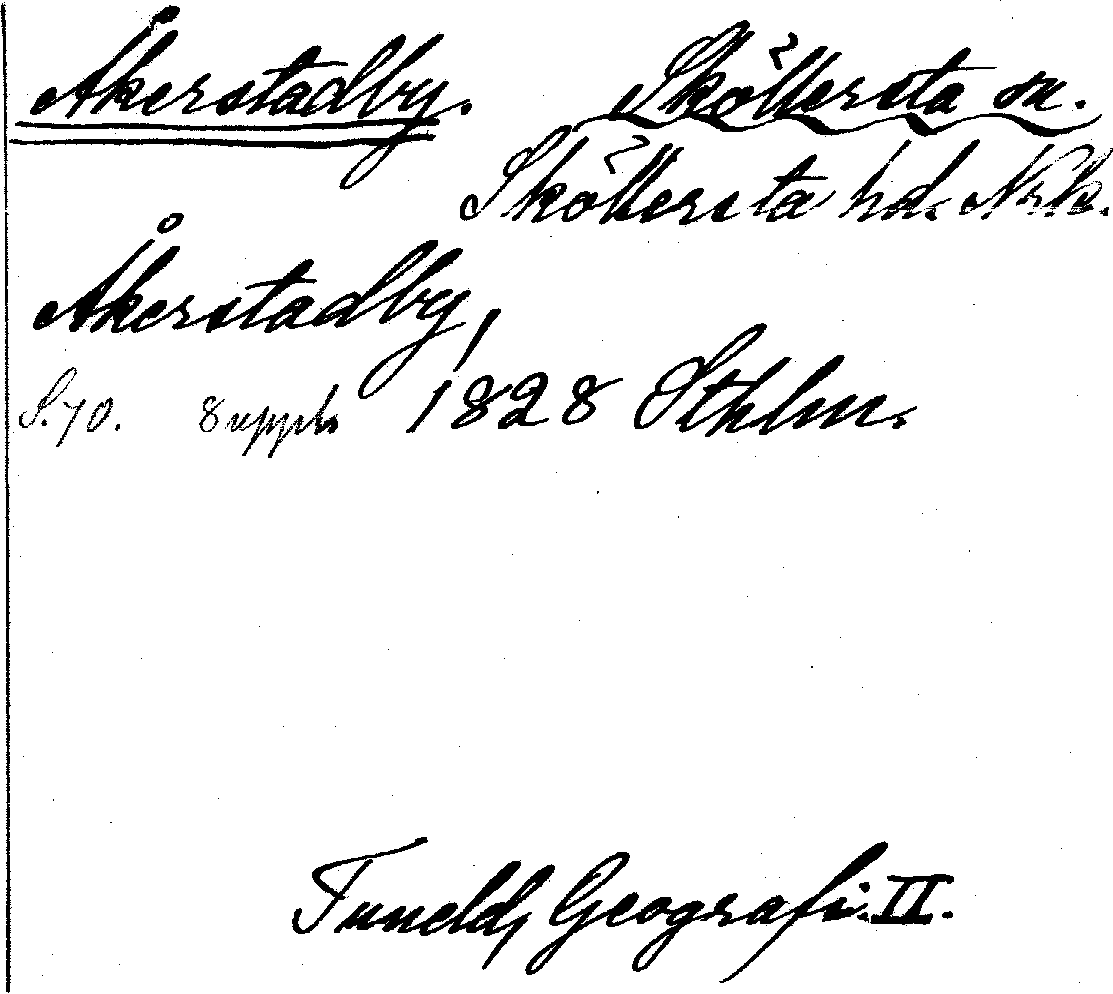 Åkerstadby. Sköllersta sn.
Sköllersta hd. Nrk.
Åkerstadby,
S. 70. 8 uppl. 1828 Sthlm.
Tuneld, Geografi. II.